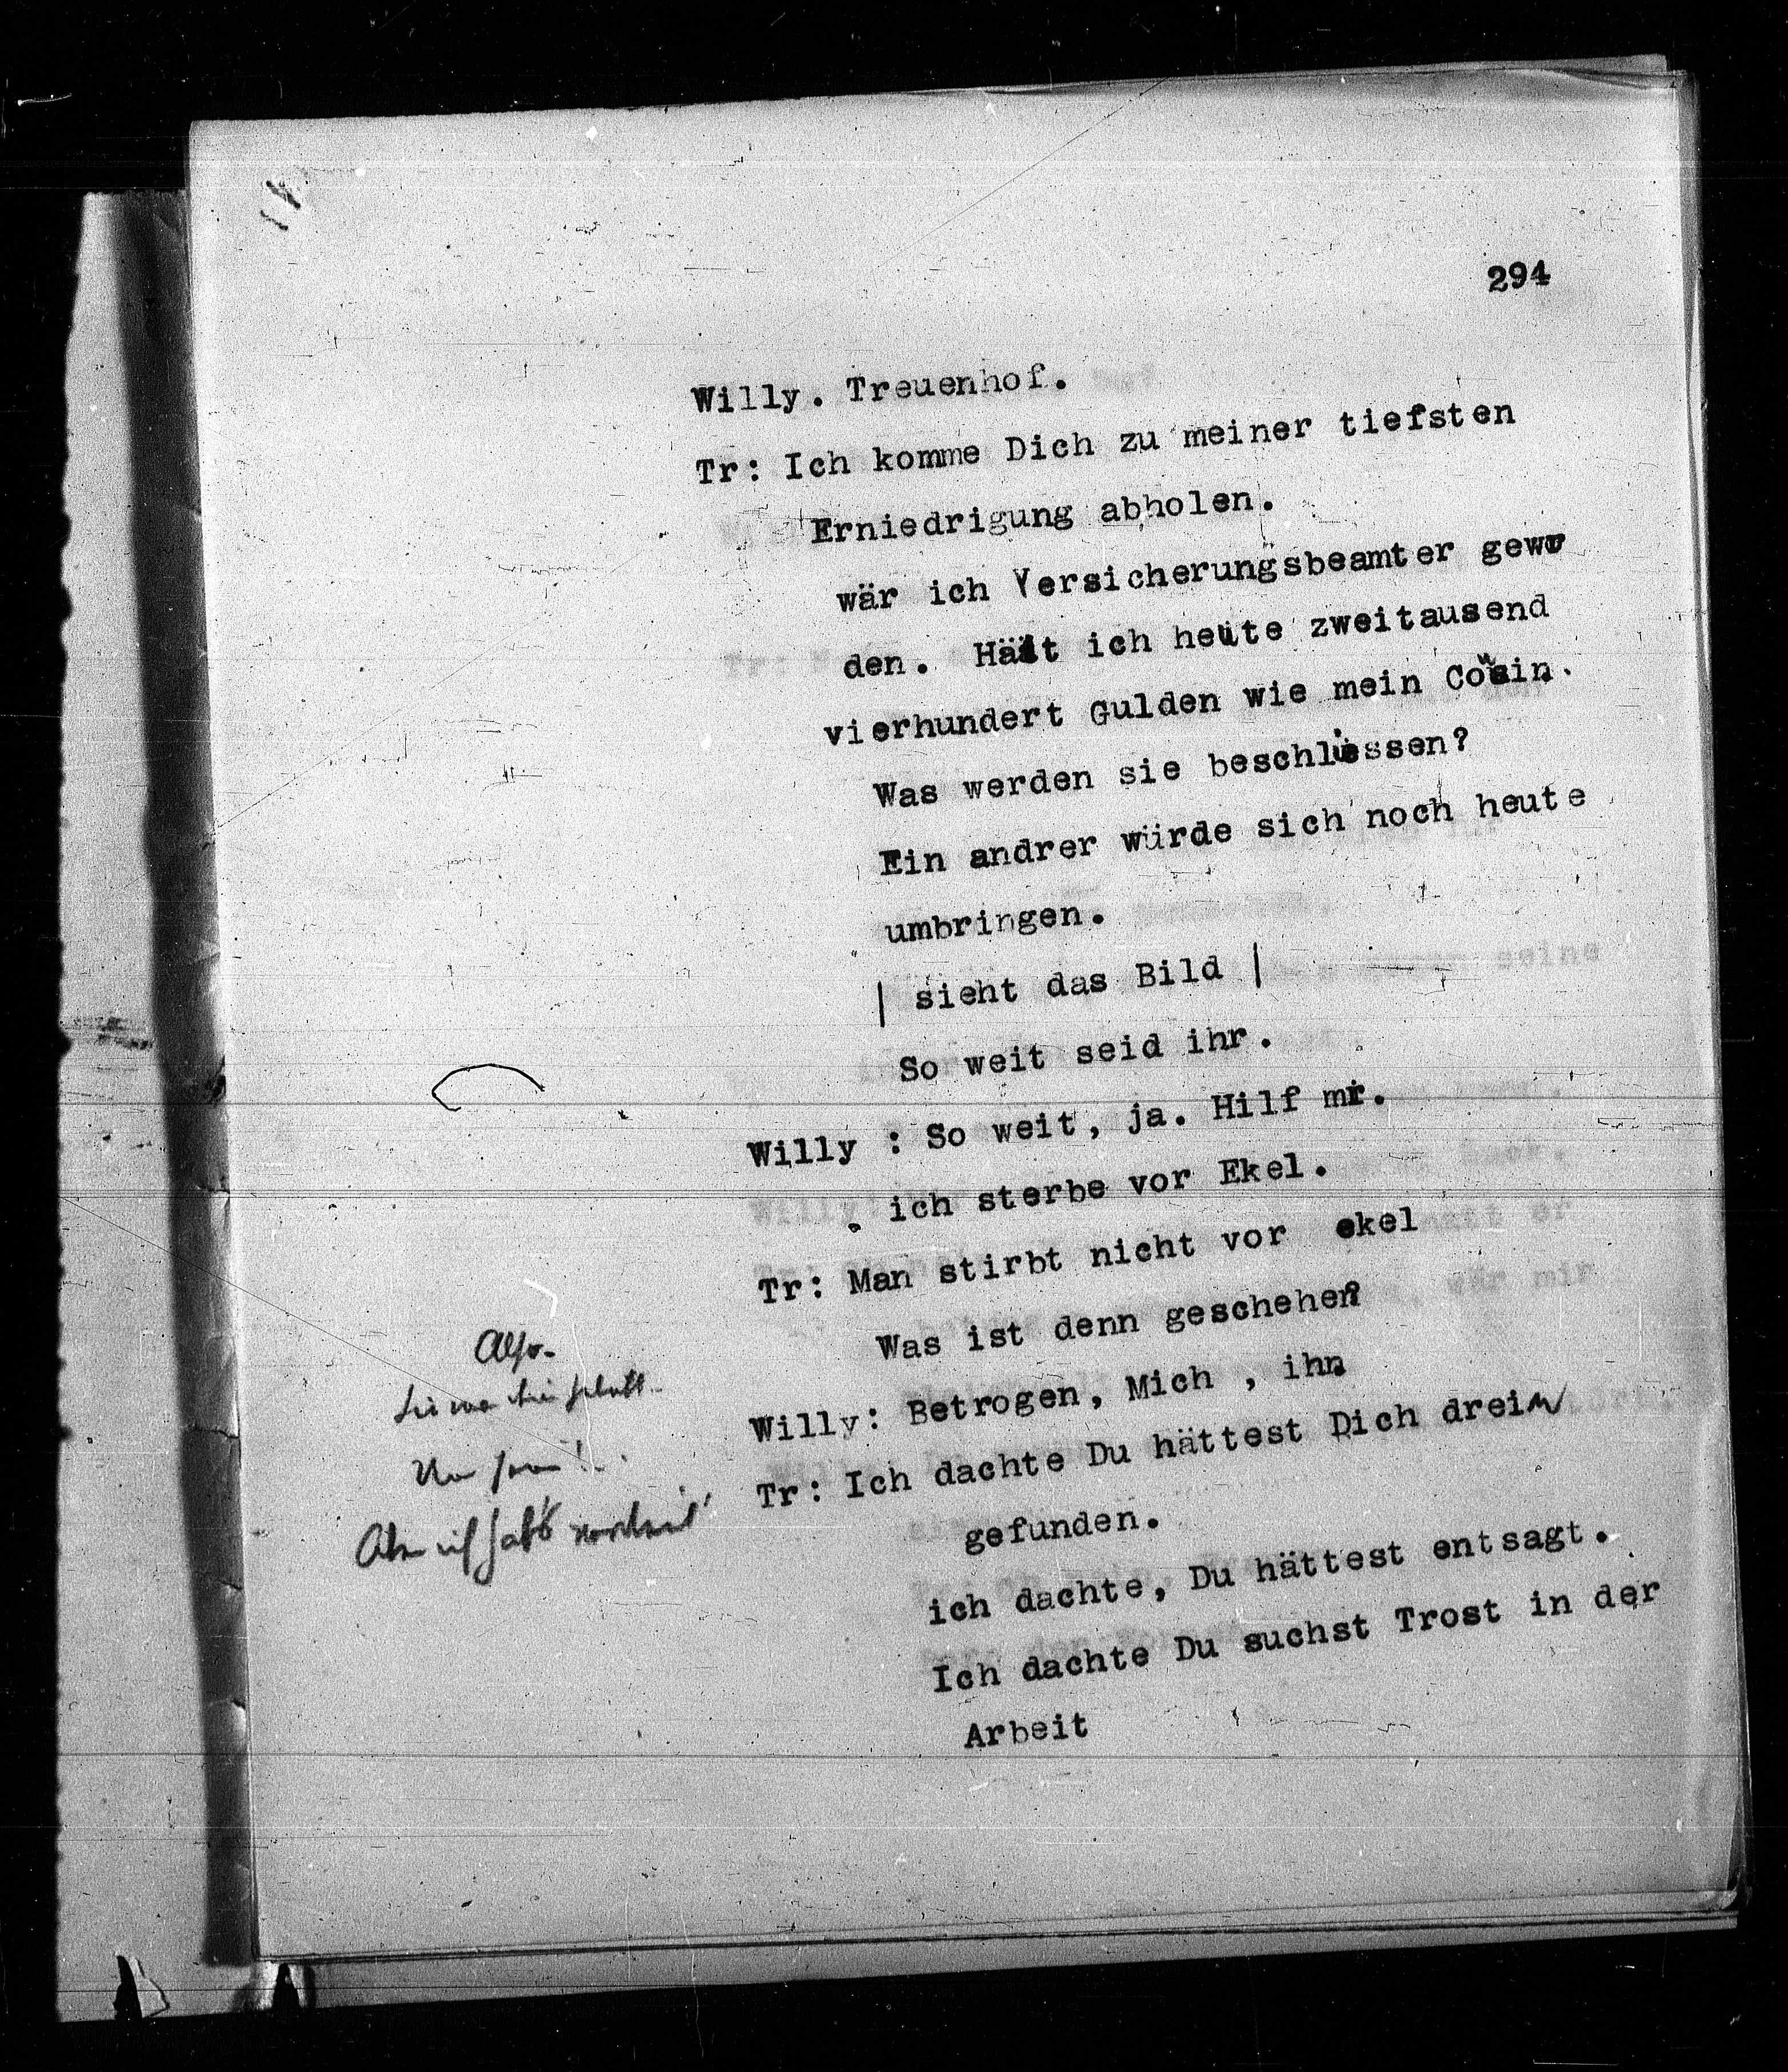 294
Willy. Treuenhof.
Tr: Ich komme Dich zu meiner tiefsten
Erniedrigung abholen.
wär ich Versicherungsbeamter gewor
den. Hätt ich heute zweitausend
vierhundert Gulden wie mein Cousin.
Was werden sie beschliessen?
Ein andrer würde sich noch heute
umbringen.
| sieht das Bild |
So weit seid ihr.
Willy : So weit, ja. Hilf mir.
ich sterbe vor Ekel.
Tr: Man stirbt nicht vor ekel
Was ist denn geschehen?
Willy: Betrogen, Mich , ihn
Tr: Ich dachte Du hättest Dich drein
gefunden.
ich dachte, Du hättest entsagt.
Ich dachte Du suchst Trost in der
Arbeit
Also-
Aber ich hab's